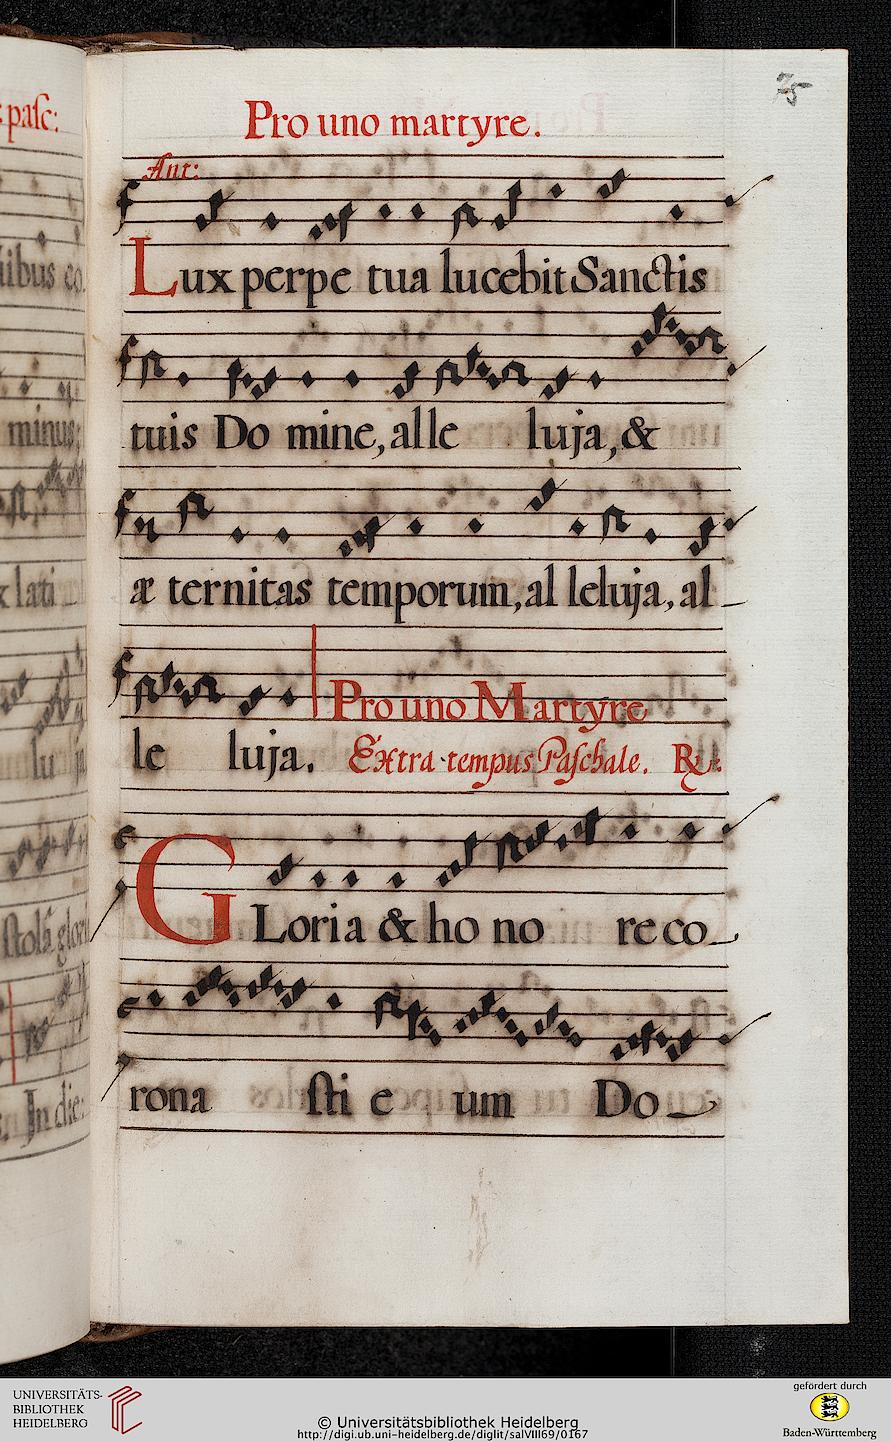 pasc:
75
Pro uno martyre.
Ant:
Lux perpe tua lucebit Sanctis
tuis Do mine, alle luja, &
æ ternitas temporum, al leluja, al
Pro uno Martyre
le luja. Extra tempus Paschale. R.
GLoria & ho no re co
rona sti e um Do
minus;
lati
stolã glori
In die:
UNIVERSITÄTS-
BIBLIOTHEK
HEIDELBERG
© Universitätsbibliothek Heidelberg
http://digi.ub.uni-heidelberg.de/diglit/salVIII69/0167
gefördert durch
Baden-Württemberg